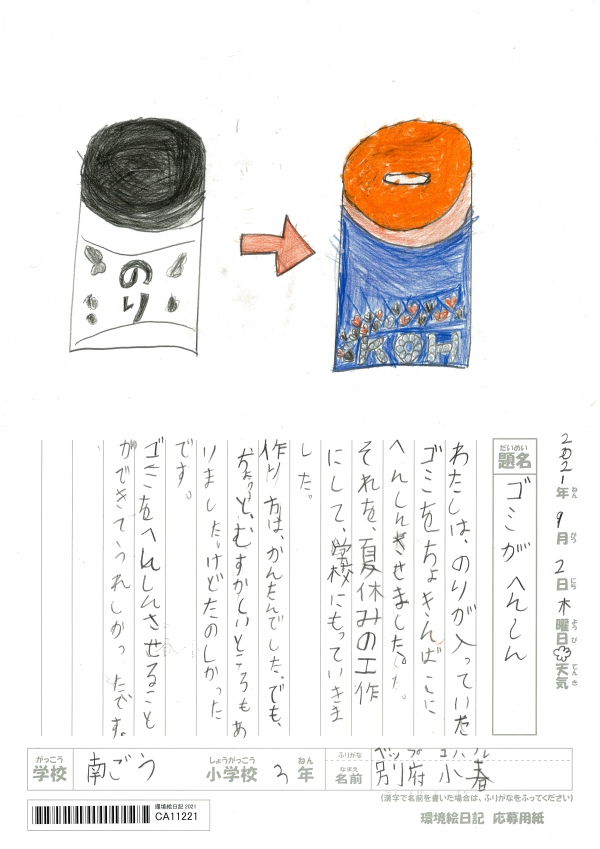 のり
KOH
2021年 9月 2日 木曜日 天気
ねん がつ にち ようび てんき
だいめい
題名
ゴミがへんしん
わたしは、のりが入っていた
ゴミをちょきんばこに
へんしんさせました。
それを、夏休みの工作
にして、学校にもっていきま
した。
作り方は、かんたんでした。でも、
ちょっと、むずかしいところもあ
りましたけどたのしかった
です。
ゴミをへんしんさせること
ができてうれしかったです。
がっこう しょうがっこう ねん
学校 南ごう 小学校 3年
ふりがな ベップ コハル
なまえ
名前 別府 小春
(漢字で名前を書いた場合は、ふりがなをふってください)
環境絵日記 2021
CA11221
環境絵日記 応募用紙